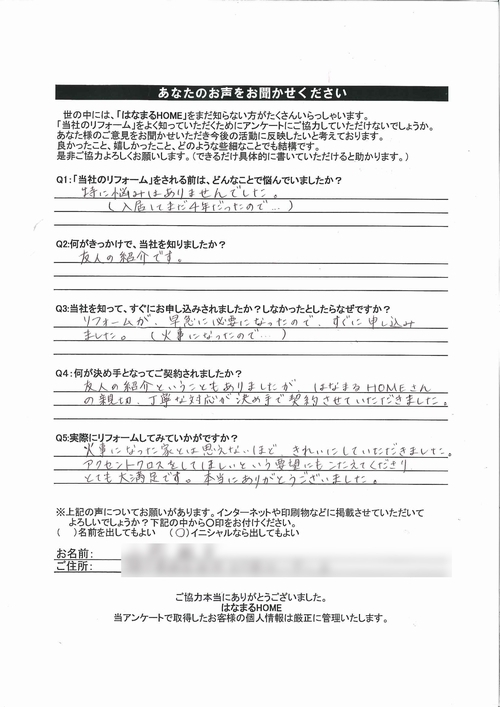 あなたのお声をお聞かせください
世の中には、「はなまるHOME」をまだ知らない方がたくさんいらっしゃいます。
「当社のリフォーム」をよく知っていただくためにアンケートにご協力していただけないでしょうか。
あなた様のご意見をお聞かせいただき今後の活動に反映したいと考えております。
良かったこと、嬉しかったこと、どのような些細なことでも結構です。
是非ご協力よろしくお願いします。(できるだけ具体的に書いていただけると助かります。)
Q1:「当社のリフォーム」をされる前は、どんなことで悩んでいましたか?
特に悩みはありませんでした。
(入居してまだ4年だったので…)
Q2:何がきっかけで、当社を知りましたか?
友人の紹介です。
Q3:当社を知って、すぐにお申し込みされましたか?しなかったとしたらなぜですか?
リフォームが、早急に必要になったので、すぐに申し込み
ました。(火事になったので…)
Q4:何が決め手となってご契約されましたか?
友人の紹介ということもありましたが、はなまるHOMEさん
の親切、丁寧な対応が決め手で契約させていただきました。
Q5:実際にリフォームしてみていかがですか?
火事になった家とは思えないほど、きれいにしていただきました。
アクセントクロスをしてほしいという要望にもこたえてくださり
とても大満足です。本当にありがとうございました。
※上記の声についてお願いがあります。インターネットや印刷物などに掲載させていただいて
よろしいでしょうか?下記の中から〇印をお付けください。
( )名前を出してもよい (〇)イニシャルなら出してもよい
お名前:
ご住所:
ご協力本当にありがとうございました。
はなまるHOME
当アンケートで取得したお客様の個人情報は厳正に管理いたします。